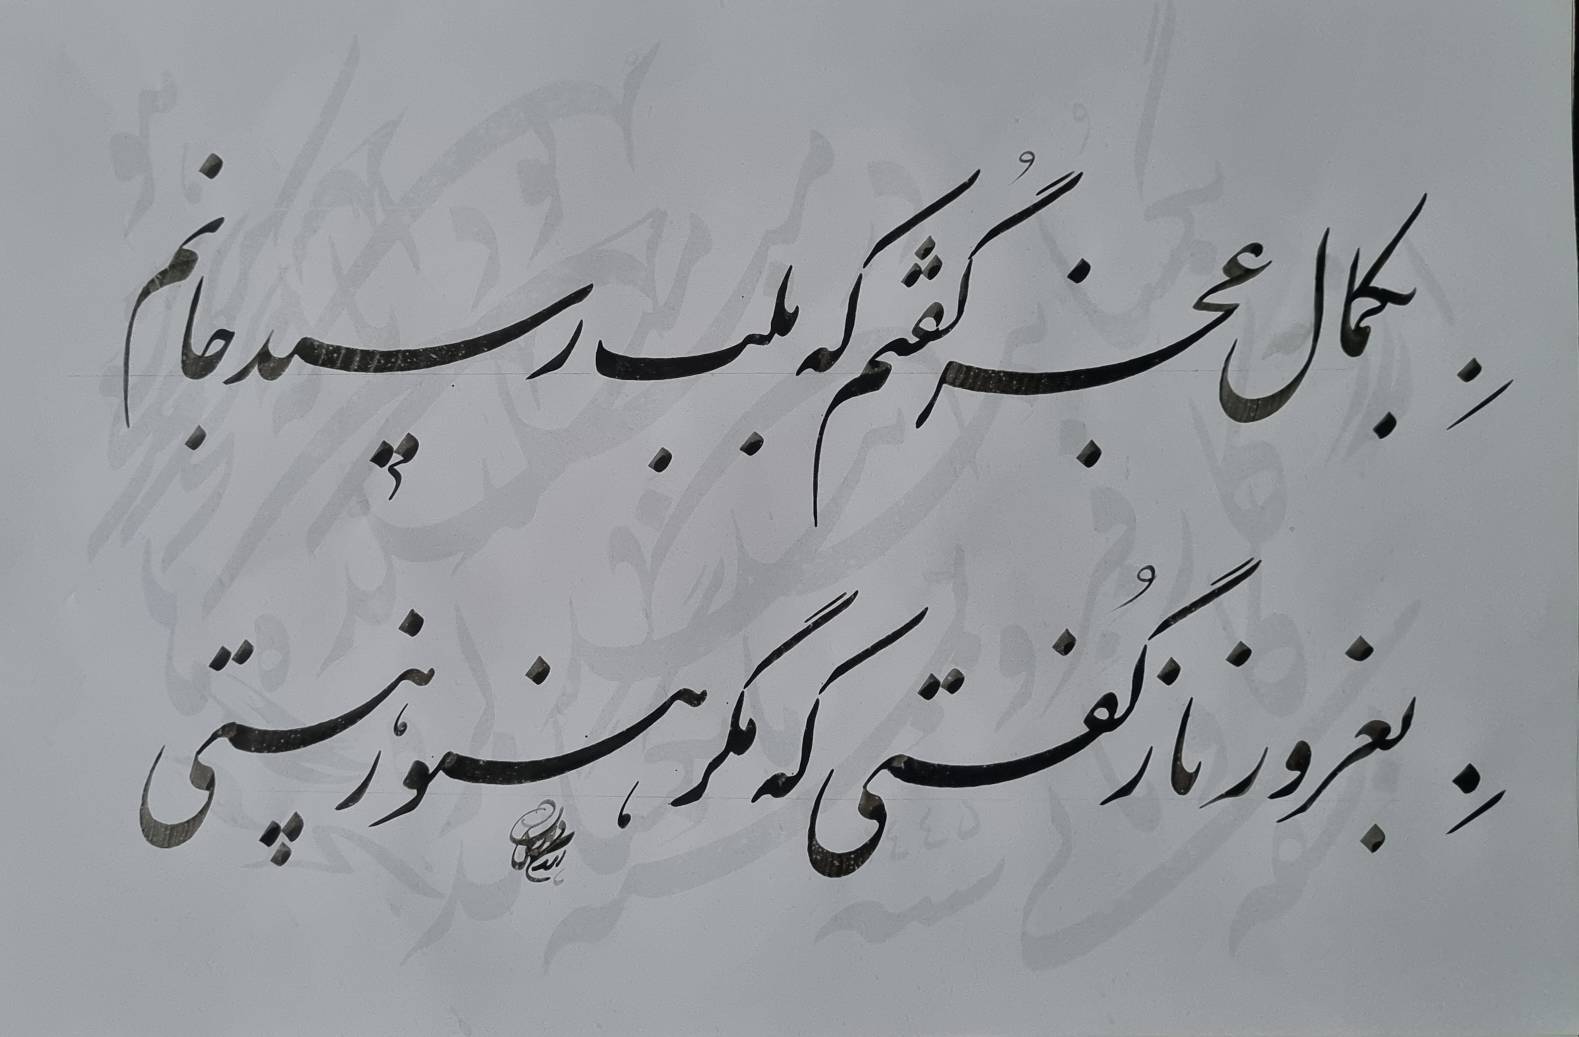 بکمال عجز گفتم که بلب رسید جانم
بغرور ناز گفتی که مگر هنوز هستی